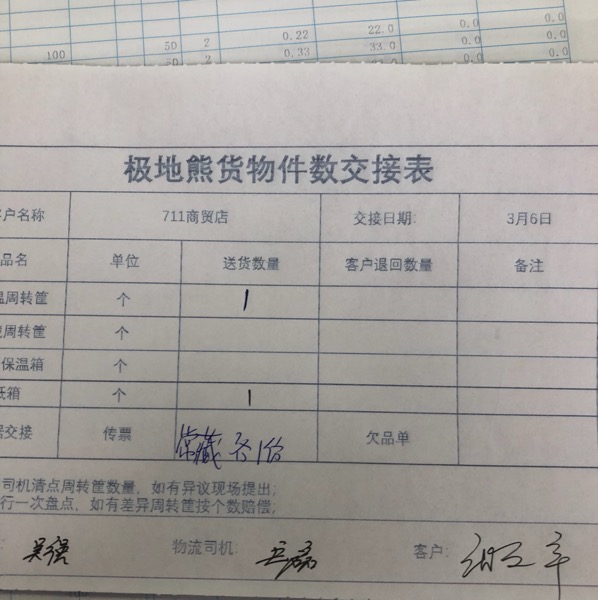 50 2 0.22 22.0 0.0 0.0
100 50 2 0.33 33.0 0.0 0.0
极地熊货物件数交接表
客户名称 711商贸店 交接日期: 3月6日
品名 单位 送货数量 客户退回数量 备注
温周转筐 个 1
周转筐 个
保温箱 个
纸箱 个 1
交接 传票 常藏各1份 欠品单
司机清点周转筐数量，如有异议现场提出，
行一次盘点，如有差异周转筐按个数赔偿，
: 吴强 物流司机: 客户: